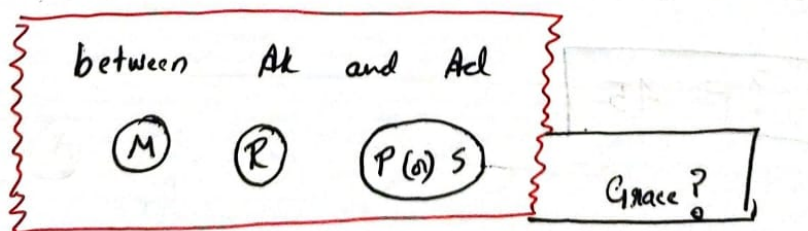 between Ak and Ad
M R P (or) S
Grace?